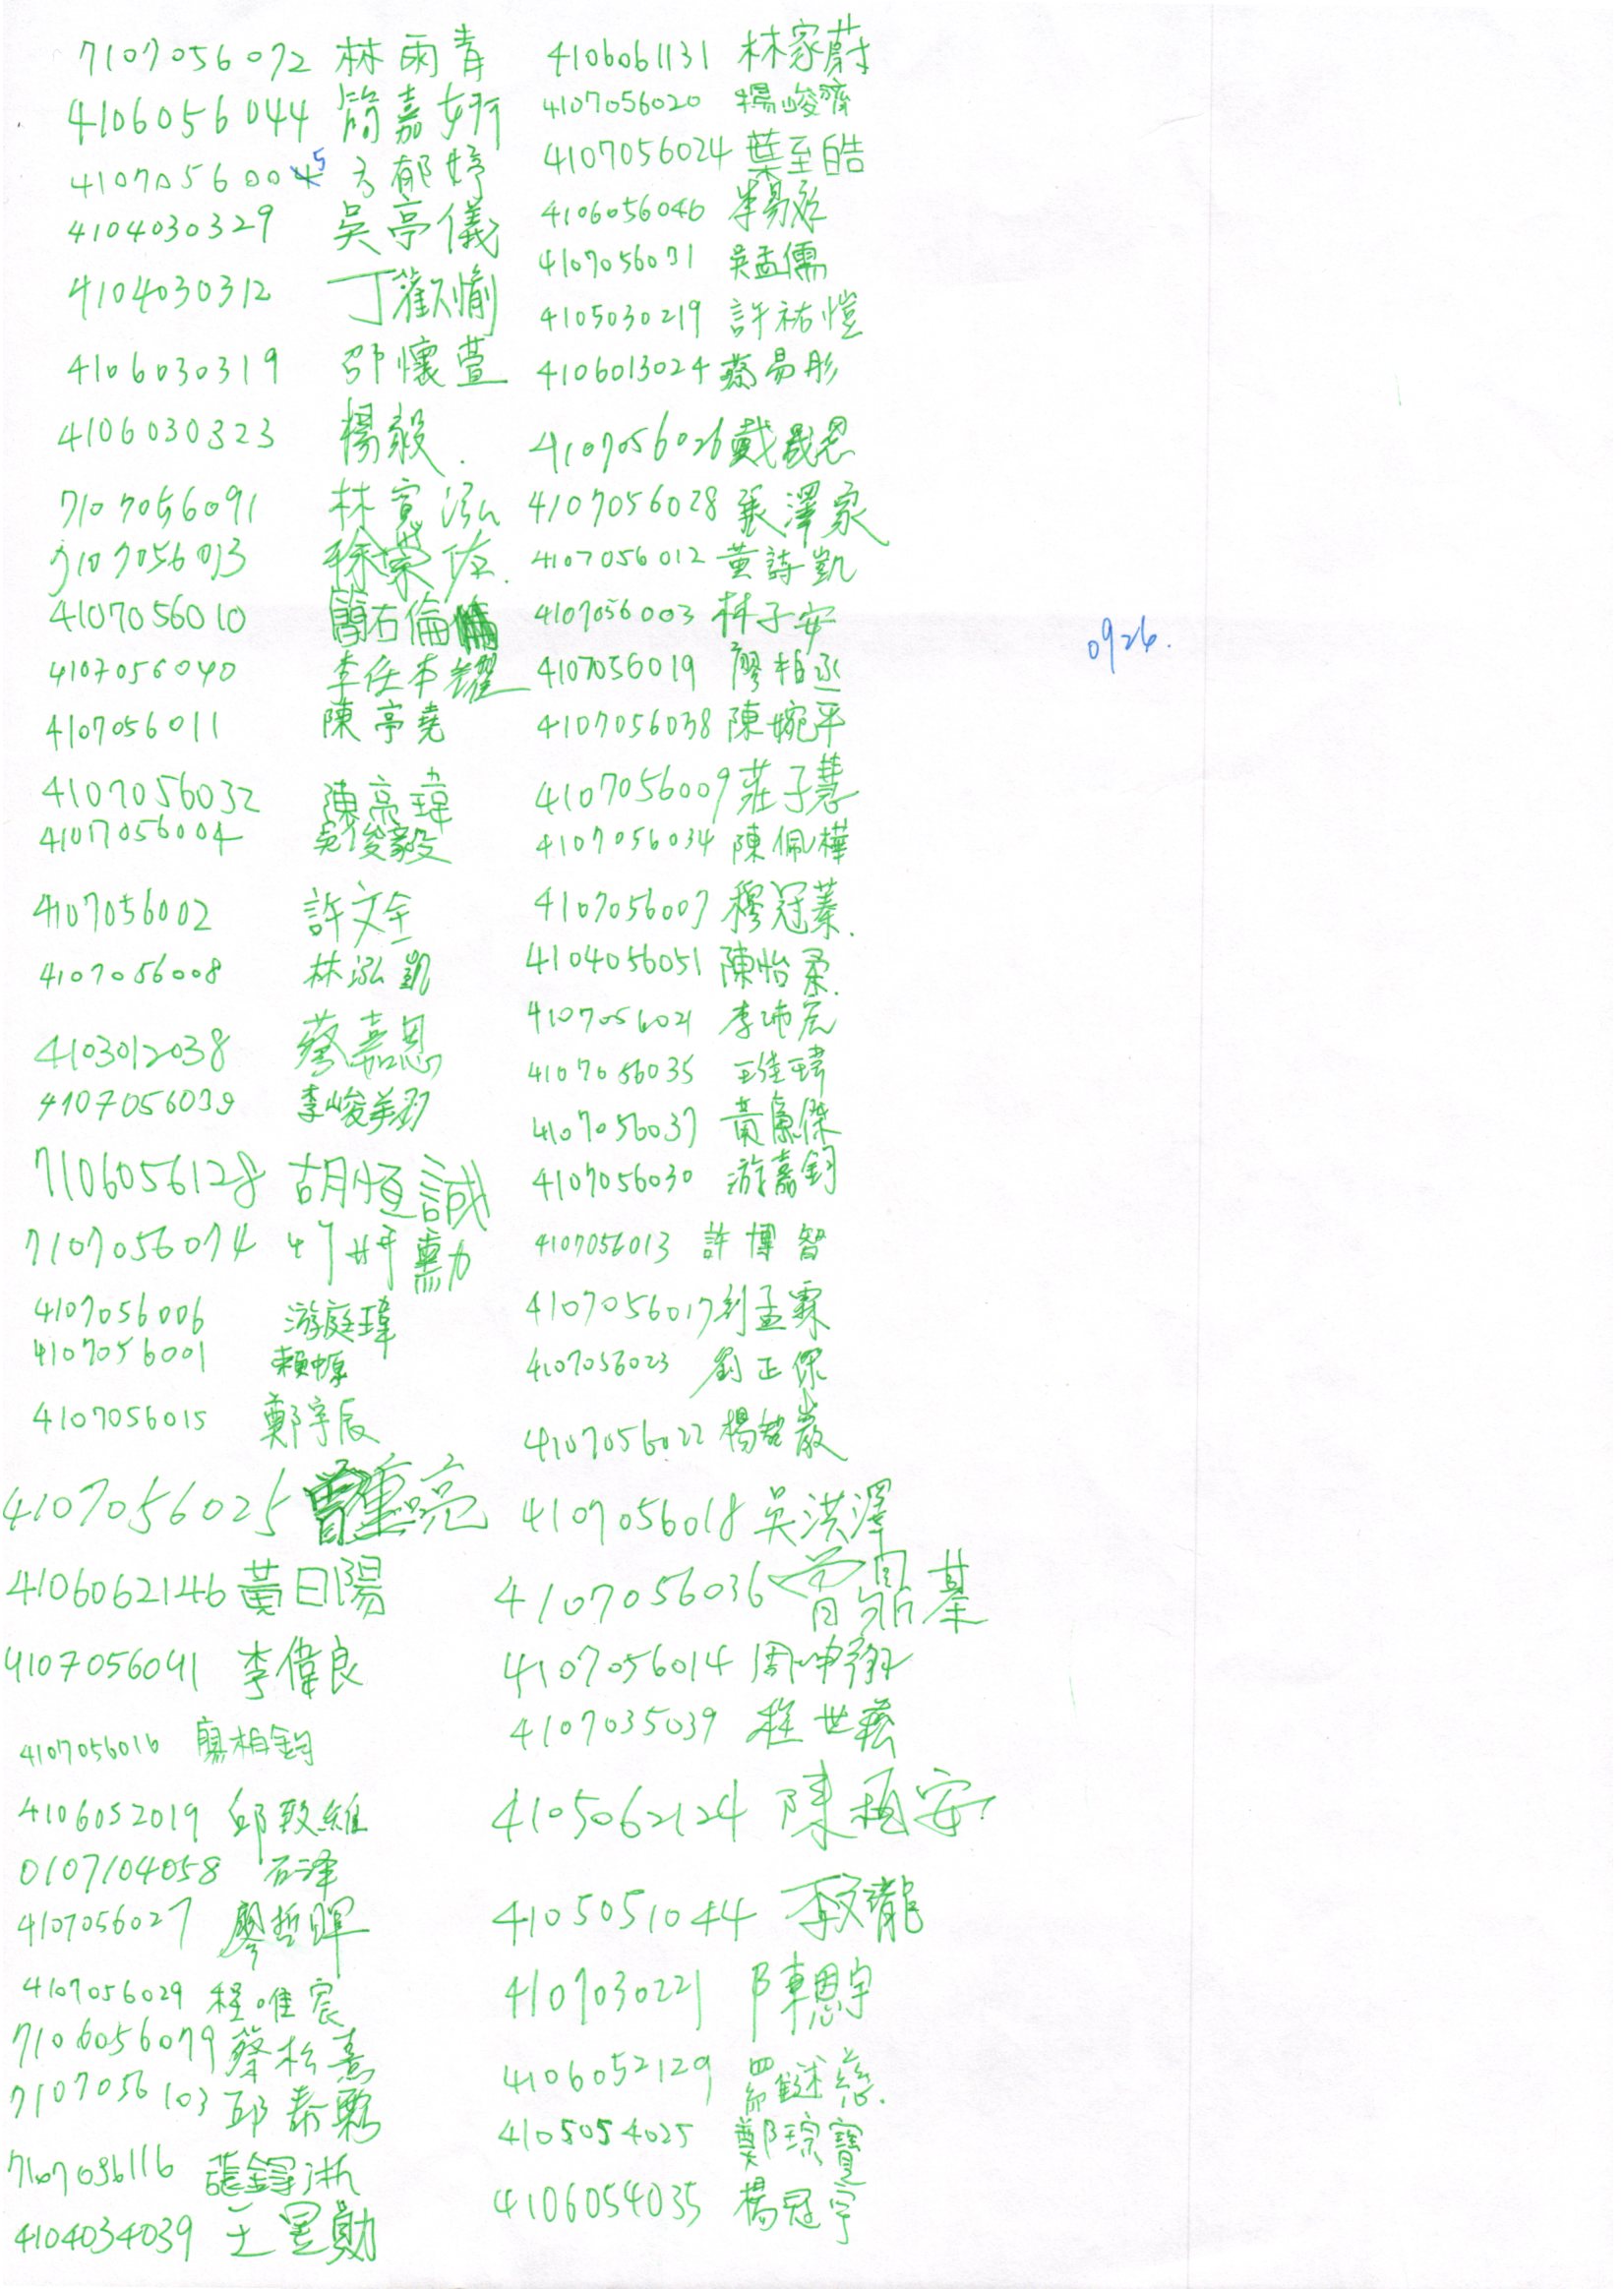 7107056072 林雨青
4106056044 簡嘉妍
4107056005 方郁婷
4104030329 吳亭儀
4104030312 丁歡愉
4106030319 邵懷萱
4106030323 楊毅.
7107056091 林寬泓
7107056013 徐榮佐.
4107056010 簡右倫
4107056040 李任本耀
4107056011 陳亭堯
4107056032 陳亮瑋
4107056004 吳俊毅
4107056002 許文全
4107056008 林泓凱
4103012038 蔡嘉恩
4107056039 李峻
7106056128 胡恒誠
7107056074
4107056006 游庭瑋
4107056001 賴
4107056015 鄭宇辰
4107056025 曾重亮
4106062146 黃日陽
4107056041 李偉良
4107056016 廖柏鈞
4106052019 邱致維
0107104058 石泽
4107056027 廖哲暉
4107056029 程唯宸
7106056079 蔡松熹
7107056103 邱泰
7107056116 張鐸
4104034039 王昱勛
4106061131 林家蔚
4107056020 楊峻齊
4107056024 葉至皓
4106056046 李易
4107056031 吳孟儒
4105030219 許祐愷
4106013024 蔡易彤
4107056026 戴晟恩
4107056028 張澤家
4107056012 黃詩凱
4107056003 林子安
4107056019 廖柏丞
4107056038 陳婉平
4107056009 莊子慧
4107056034 陳佩樺
4107056007 穆冠蓁.
4104056051 陳怡柔.
4107056021 李沛宸
4107056035 王佳瑋
4107056037 黃傑
4107056030 游嘉鈞
4107056013 許博智
4107056017 刘孟霖
4107056023 劉正傑
4107056022 楊巖
4107056018 吳洪澤
4107056036 曾蓁
4107056014 周坤翰
4107035039 程世
4105062124 陳安
4105051044 李文瓏
4107030221 陳思宇
4106052129 羅慈.
4105054025 鄭琮寶
4106054035 楊冠宇
0926.